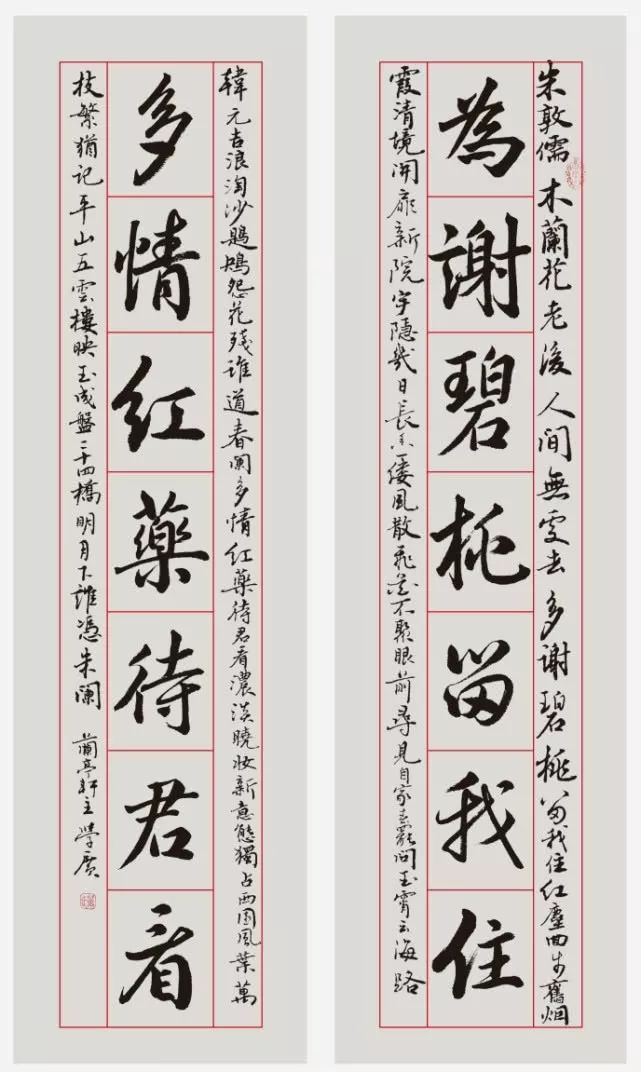 朱敦儒木蘭花老後人間無處去多謝碧桃留我住紅塵回步舊烟
為謝碧桃留我住
霞清境開扉新院宇隱幾日長香一縷風散飛花不聚眼前尋見自家春罷問玉霄云海路
韓元吉浪淘沙鶗鴂怨花殘誰道春闌多情紅藥待君看濃淡曉妝新意態獨占西園風葉萬
多情紅藥待君看
枝繁猶記平山五雲樓映玉成盤二十四橋明月下誰憑朱闌 蘭亭軒主學廣